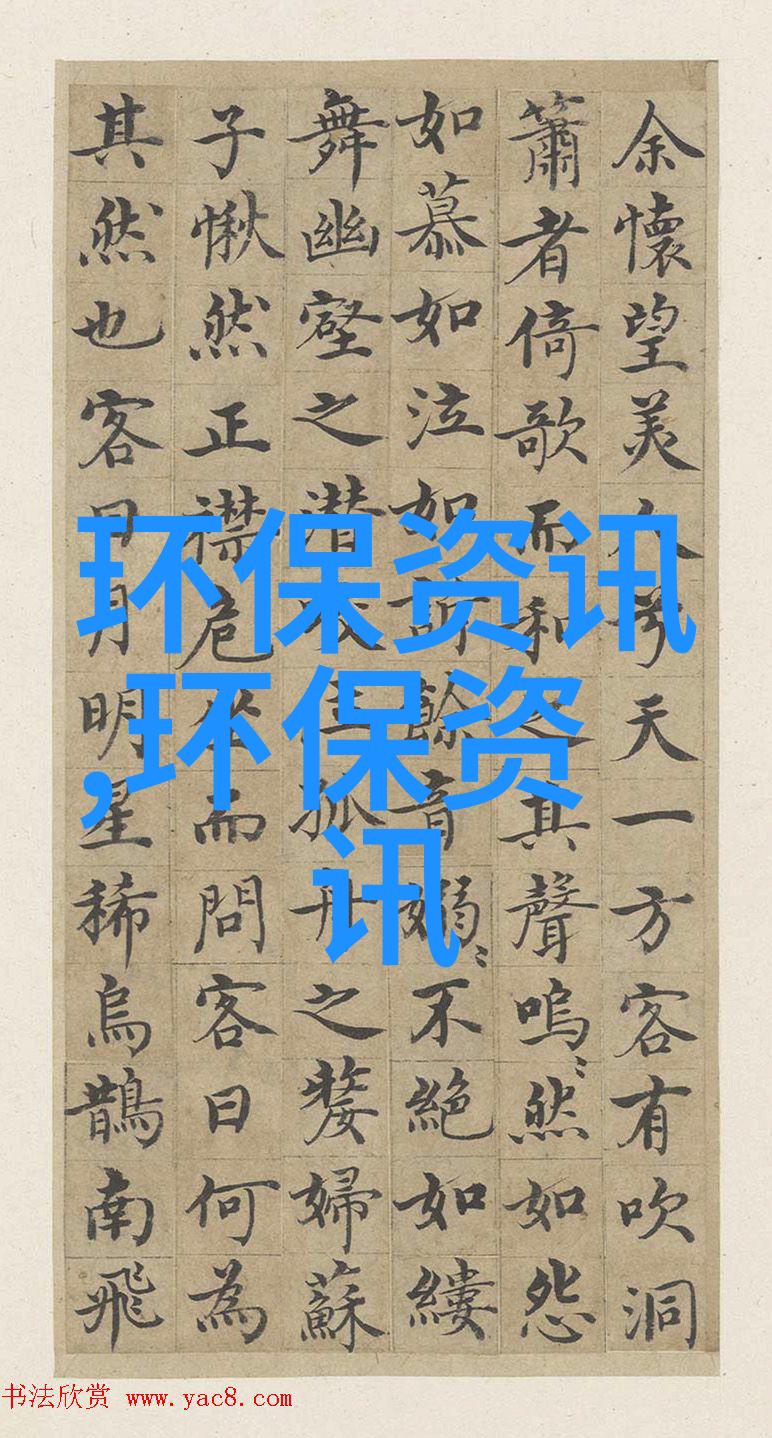 余懷望美人兮天一方客有吹洞
簫者倚歌而和之其聲嗚〻然如怨
如慕如泣如訴餘音嫋〻不絕如縷
舞幽壑之潛孤舟之嫠婦蘇
子愀然正襟危坐而問客曰何為
其然也客曰月明星稀烏鵲南飛
环保资讯
,环保资
讯
书法欣赏 www.yac8.com